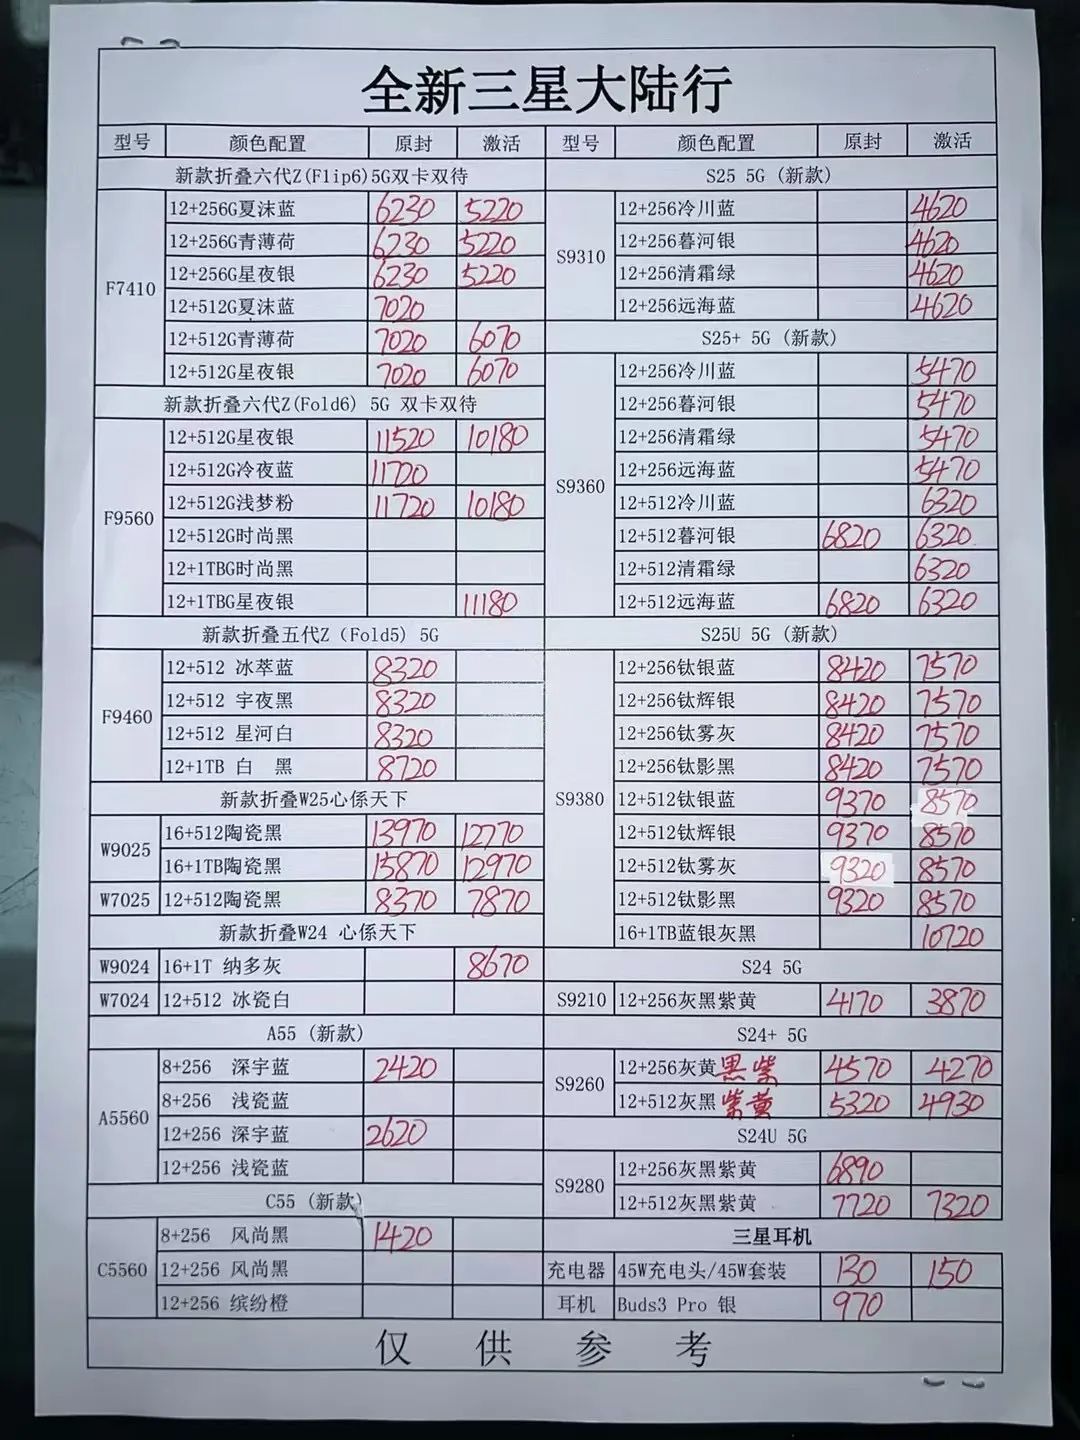 全新三星大陆行
型号 颜色配置 原封 激活 型号 颜色配置 原封 激活
新款折叠六代Z(Flip6)5G双卡双待
F7410
12+256G夏沫蓝 6230 5220
12+256G青薄荷 6230 5220
12+256G星夜银 6230 5220
12+512G夏沫蓝 7020
12+512G青薄荷 7020 6070
12+512G星夜银 7020 6070
新款折叠六代Z(Fold6) 5G 双卡双待
F9560
12+512G星夜银 11520 10180
12+512G冷夜蓝 11720
12+512G浅梦粉 11720 10180
12+512G时尚黑
12+1TBG时尚黑
12+1TBG星夜银 11180
新款折叠五代Z（Fold5) 5G
F9460
12+512 冰萃蓝 8320
12+512 宇夜黑 8320
12+512 星河白 8320
12+1TB 白 黑 8720
新款折叠W25心係天下
W9025
16+512陶瓷黑 13970 12770
16+1TB陶瓷黑 15870 12970
W7025 12+512陶瓷黑 8370 7870
新款折叠W24 心係天下
W9024 16+1T 纳多灰 8670
W7024 12+512 冰瓷白
A55 (新款)
A5560
8+256 深宇蓝 2420
8+256 浅瓷蓝
12+256 深宇蓝 2620
12+256 浅瓷蓝
C55 (新款)
C5560
8+256 风尚黑 1420
12+256 风尚黑
12+256 缤纷橙
S25 5G (新款)
S9310
12+256冷川蓝 4620
12+256暮河银 4620
12+256清霜绿 4620
12+256远海蓝 4620
S25+ 5G (新款)
S9360
12+256冷川蓝 5470
12+256暮河银 5470
12+256清霜绿 5470
12+256远海蓝 5470
12+512冷川蓝 6320
12+512暮河银 6820 6320
12+512清霜绿 6320
12+512远海蓝 6820 6320
S25U 5G (新款)
S9380
12+256钛银蓝 8420 7570
12+256钛辉银 8420 7570
12+256钛雾灰 8420 7570
12+256钛影黑 8420 7570
12+512钛银蓝 9370 8570
12+512钛辉银 9370 8570
12+512钛雾灰 9320 8570
12+512钛影黑 9320 8570
16+1TB蓝银灰黑 10720
S24 5G
S9210 12+256灰黑紫黄 4170 3870
S24+ 5G
S9260
12+256灰黄黑紫 4570 4270
12+512灰黑紫黄 5320 4930
S24U 5G
S9280
12+256灰黑紫黄 6890
12+512灰黑紫黄 7720 7320
三星耳机
充电器 45W充电头/45W套装 130 150
耳机 Buds3 Pro 银 970
仅供参考